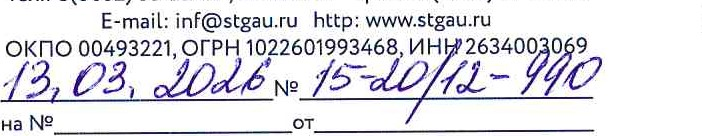 E-mail: inf@stgau.ru http: www.stgau.ru
ОКПО 00493221, ОГРН 1022601993468, ИНН 2634003069
13.03.2026 № 15-20/12-990
на № от